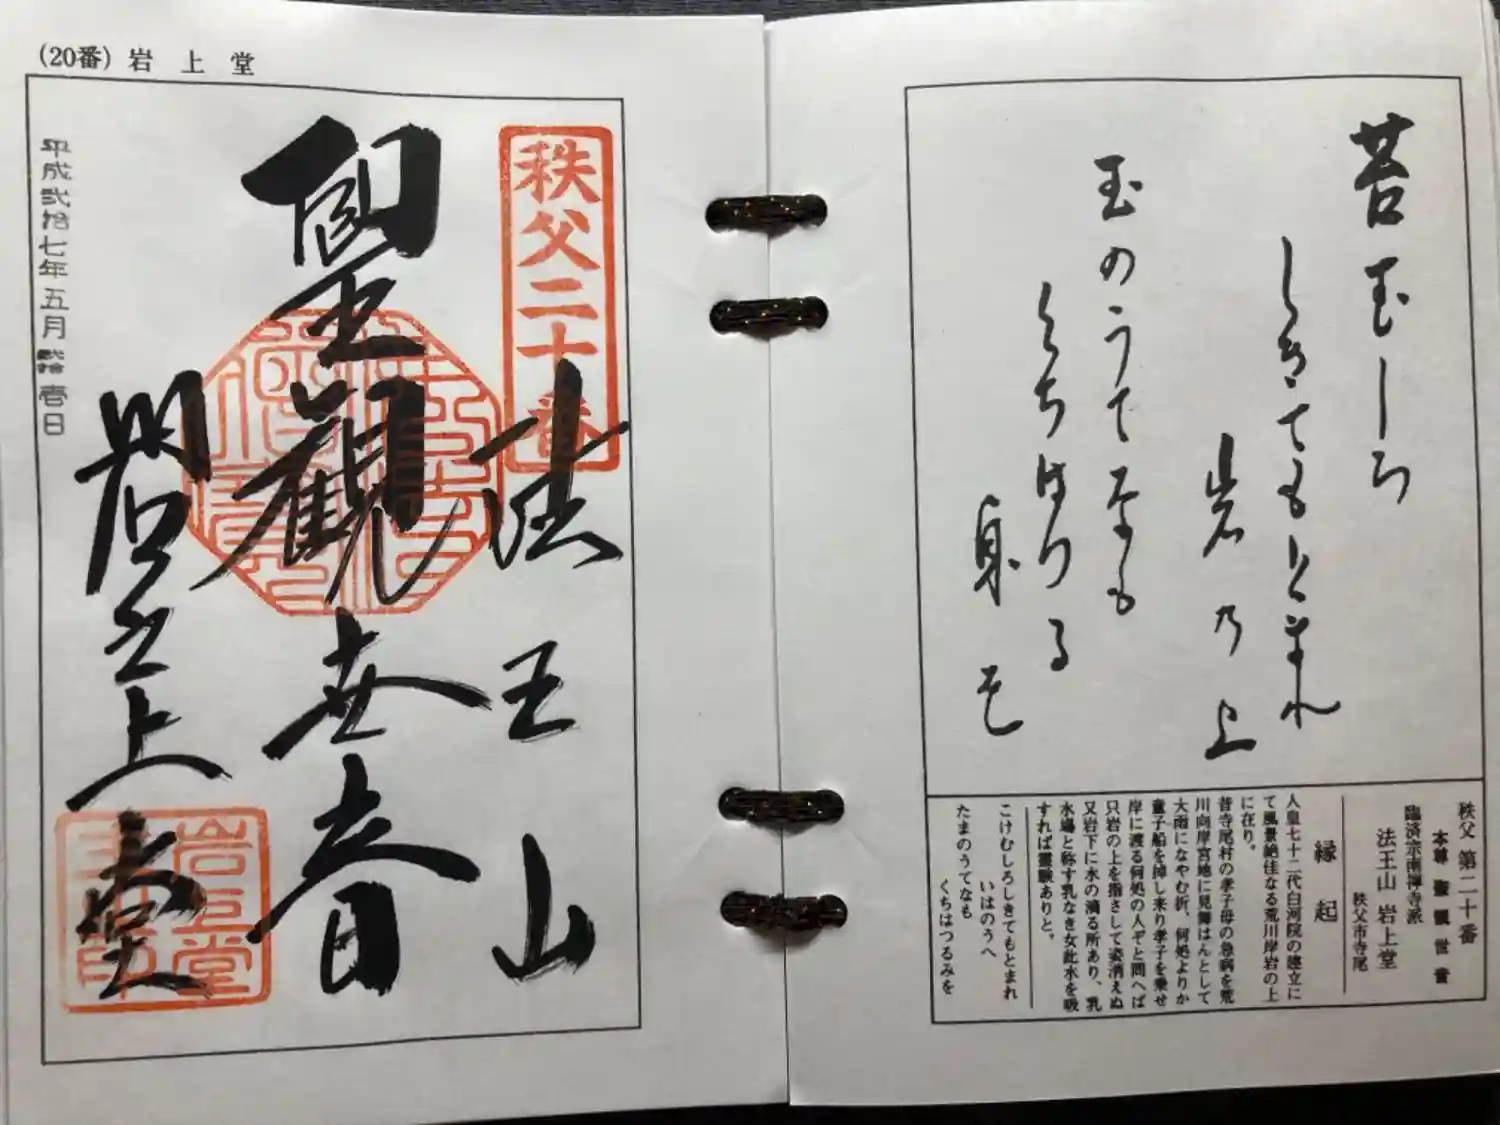 苔むしろ
しきてもとまれ
岩の上
玉のうてなも
くちはつる
身を
秩父 第二十番
本尊 聖観世音
臨済宗南禅寺派
法王山 岩上堂
秩父市寺尾
縁起
人皇七十二代白河院の建立に
て風景絶佳なる荒川岸岩の上
に在り。
昔寺尾村の孝子母の急病を荒
川向岸宮地に見舞はんとして
大雨になやむ折、何処よりか
童子船を掉し来り孝子を乗せ
岸に渡る何処の人ぞと問へば
只岩の上を指さして姿消えぬ
又岩下に水の滴る所あり、乳
水場と称す乳なき女此水を吸
すれば霊験ありと。
こけむしろしきてもとまれ
いはのうへ
たまのうてなも
くちはつるみを
(20番) 岩上堂
秩父二十番
法王山
聖観世音
岩之上堂
平成弐拾七年五月弐拾壱日